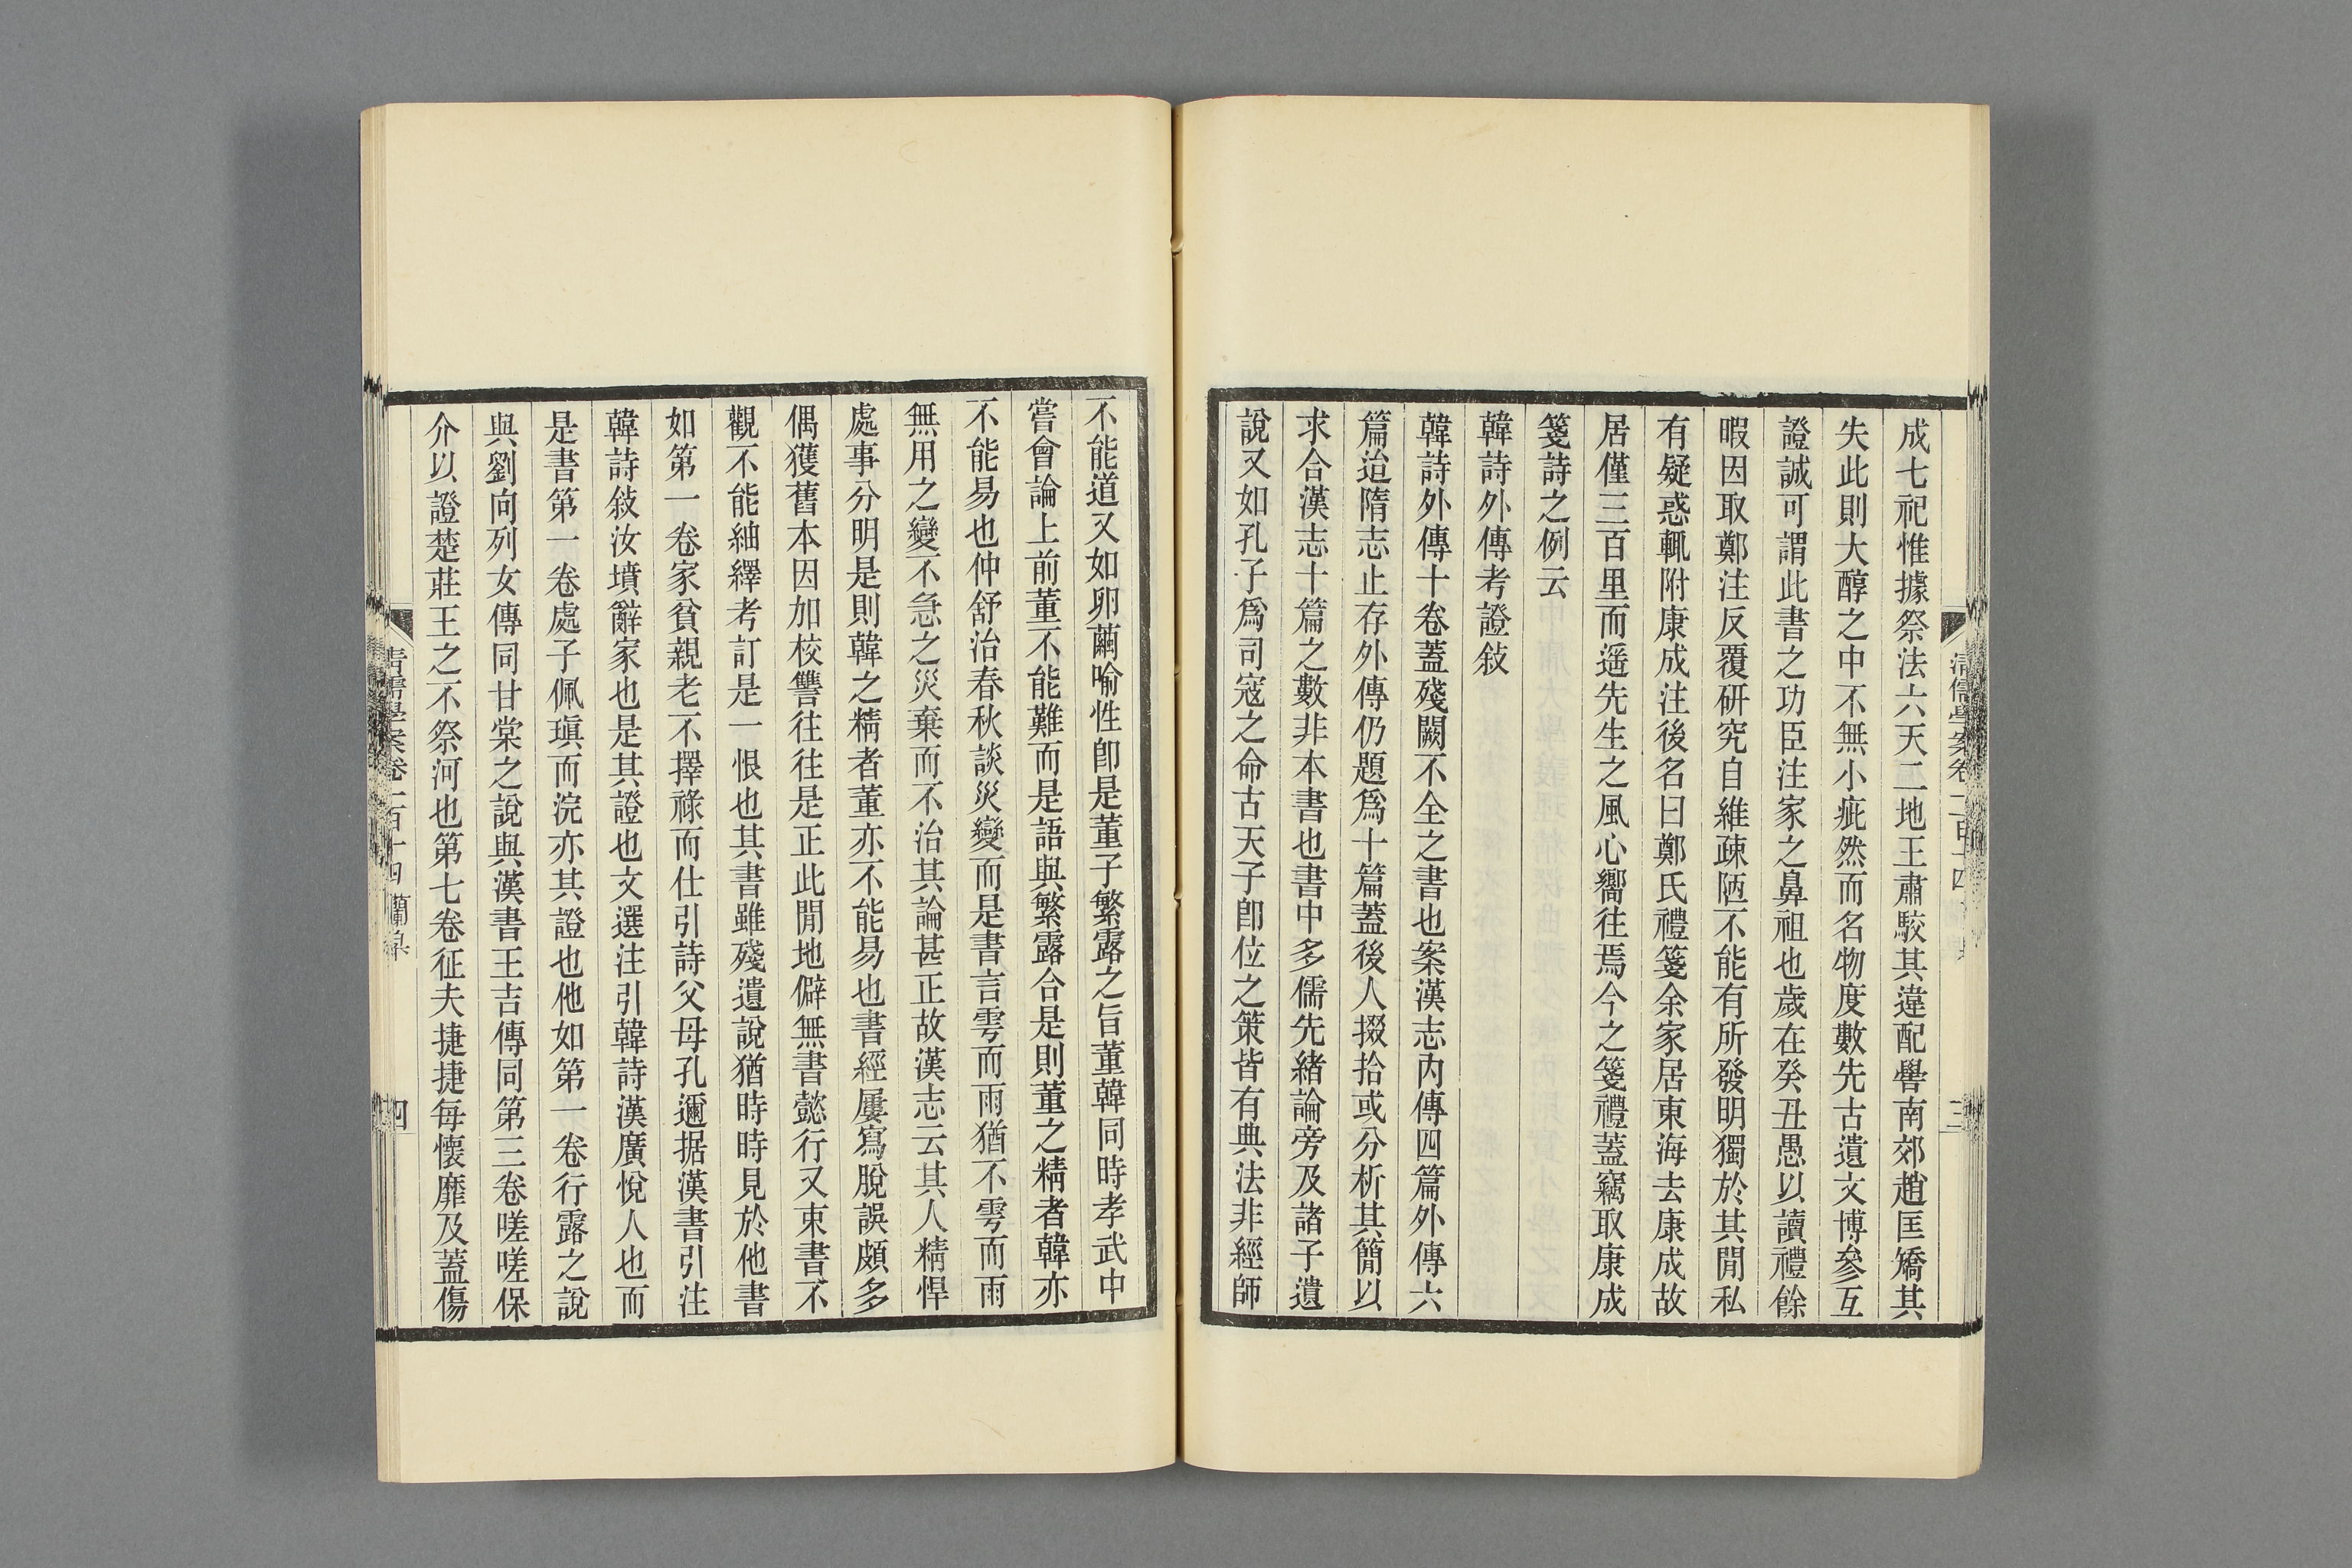 成七祀惟據祭法六天二地王肅駮其違配嚳南郊趙匡矯其
失此則大醇之中不無小疵然而名物度數先古遺文博參互
證誠可謂此書之功臣注家之鼻祖也歲在癸丑愚以讀禮餘
暇因取鄭注反覆研究自維疎陋不能有所發明獨於其閒私
有疑惑輒附康成注後名曰鄭氏禮箋余家居東海去康成故
居僅三百里而遥先生之風心嚮往焉今之箋禮蓋竊取康成
箋詩之例云
韓詩外傳考證敍
韓詩外傳十卷蓋殘闕不全之書也案漢志內傳四篇外傳六
篇迨隋志止存外傳仍題爲十篇蓋後人掇拾或分析其簡以
求合漢志十篇之數非本書也書中多儒先緒論旁及諸子遺
說又如孔子爲司寇之命古天子卽位之策皆有典法非經師
清儒學案卷二百十四
三
不能道又如卵繭喻性卽是董子繁露之旨董韓同時孝武中
嘗會論上前董不能難而是語與繁露合是則董之精者韓亦
不能易也仲舒治春秋談災變而是書言雩而雨猶不雩而雨
無用之變不急之災棄而不治其論甚正故漢志云其人精悍
處事分明是則韓之精者董亦不能易也書經屢寫脫誤頗多
偶獲舊本因加校讐往往是正此閒地僻無書懿行又束書不
觀不能紬繹考訂是一恨也其書雖殘遺說猶時時見於他書
如第一卷家貧親老不擇祿而仕引詩父母孔邇据漢書引注
韓詩敍汝墳辭家也是其證也文選注引韓詩漢廣悅人也而
是書第一卷處子佩瑱而浣亦其證也他如第一卷行露之說
與劉向列女傳同甘棠之說與漢書王吉傳同第三卷嗟嗟保
介以證楚莊王之不祭河也第七卷征夫捷捷每懷靡及蓋傷
清儒學案卷二百十四 蘭皋
四